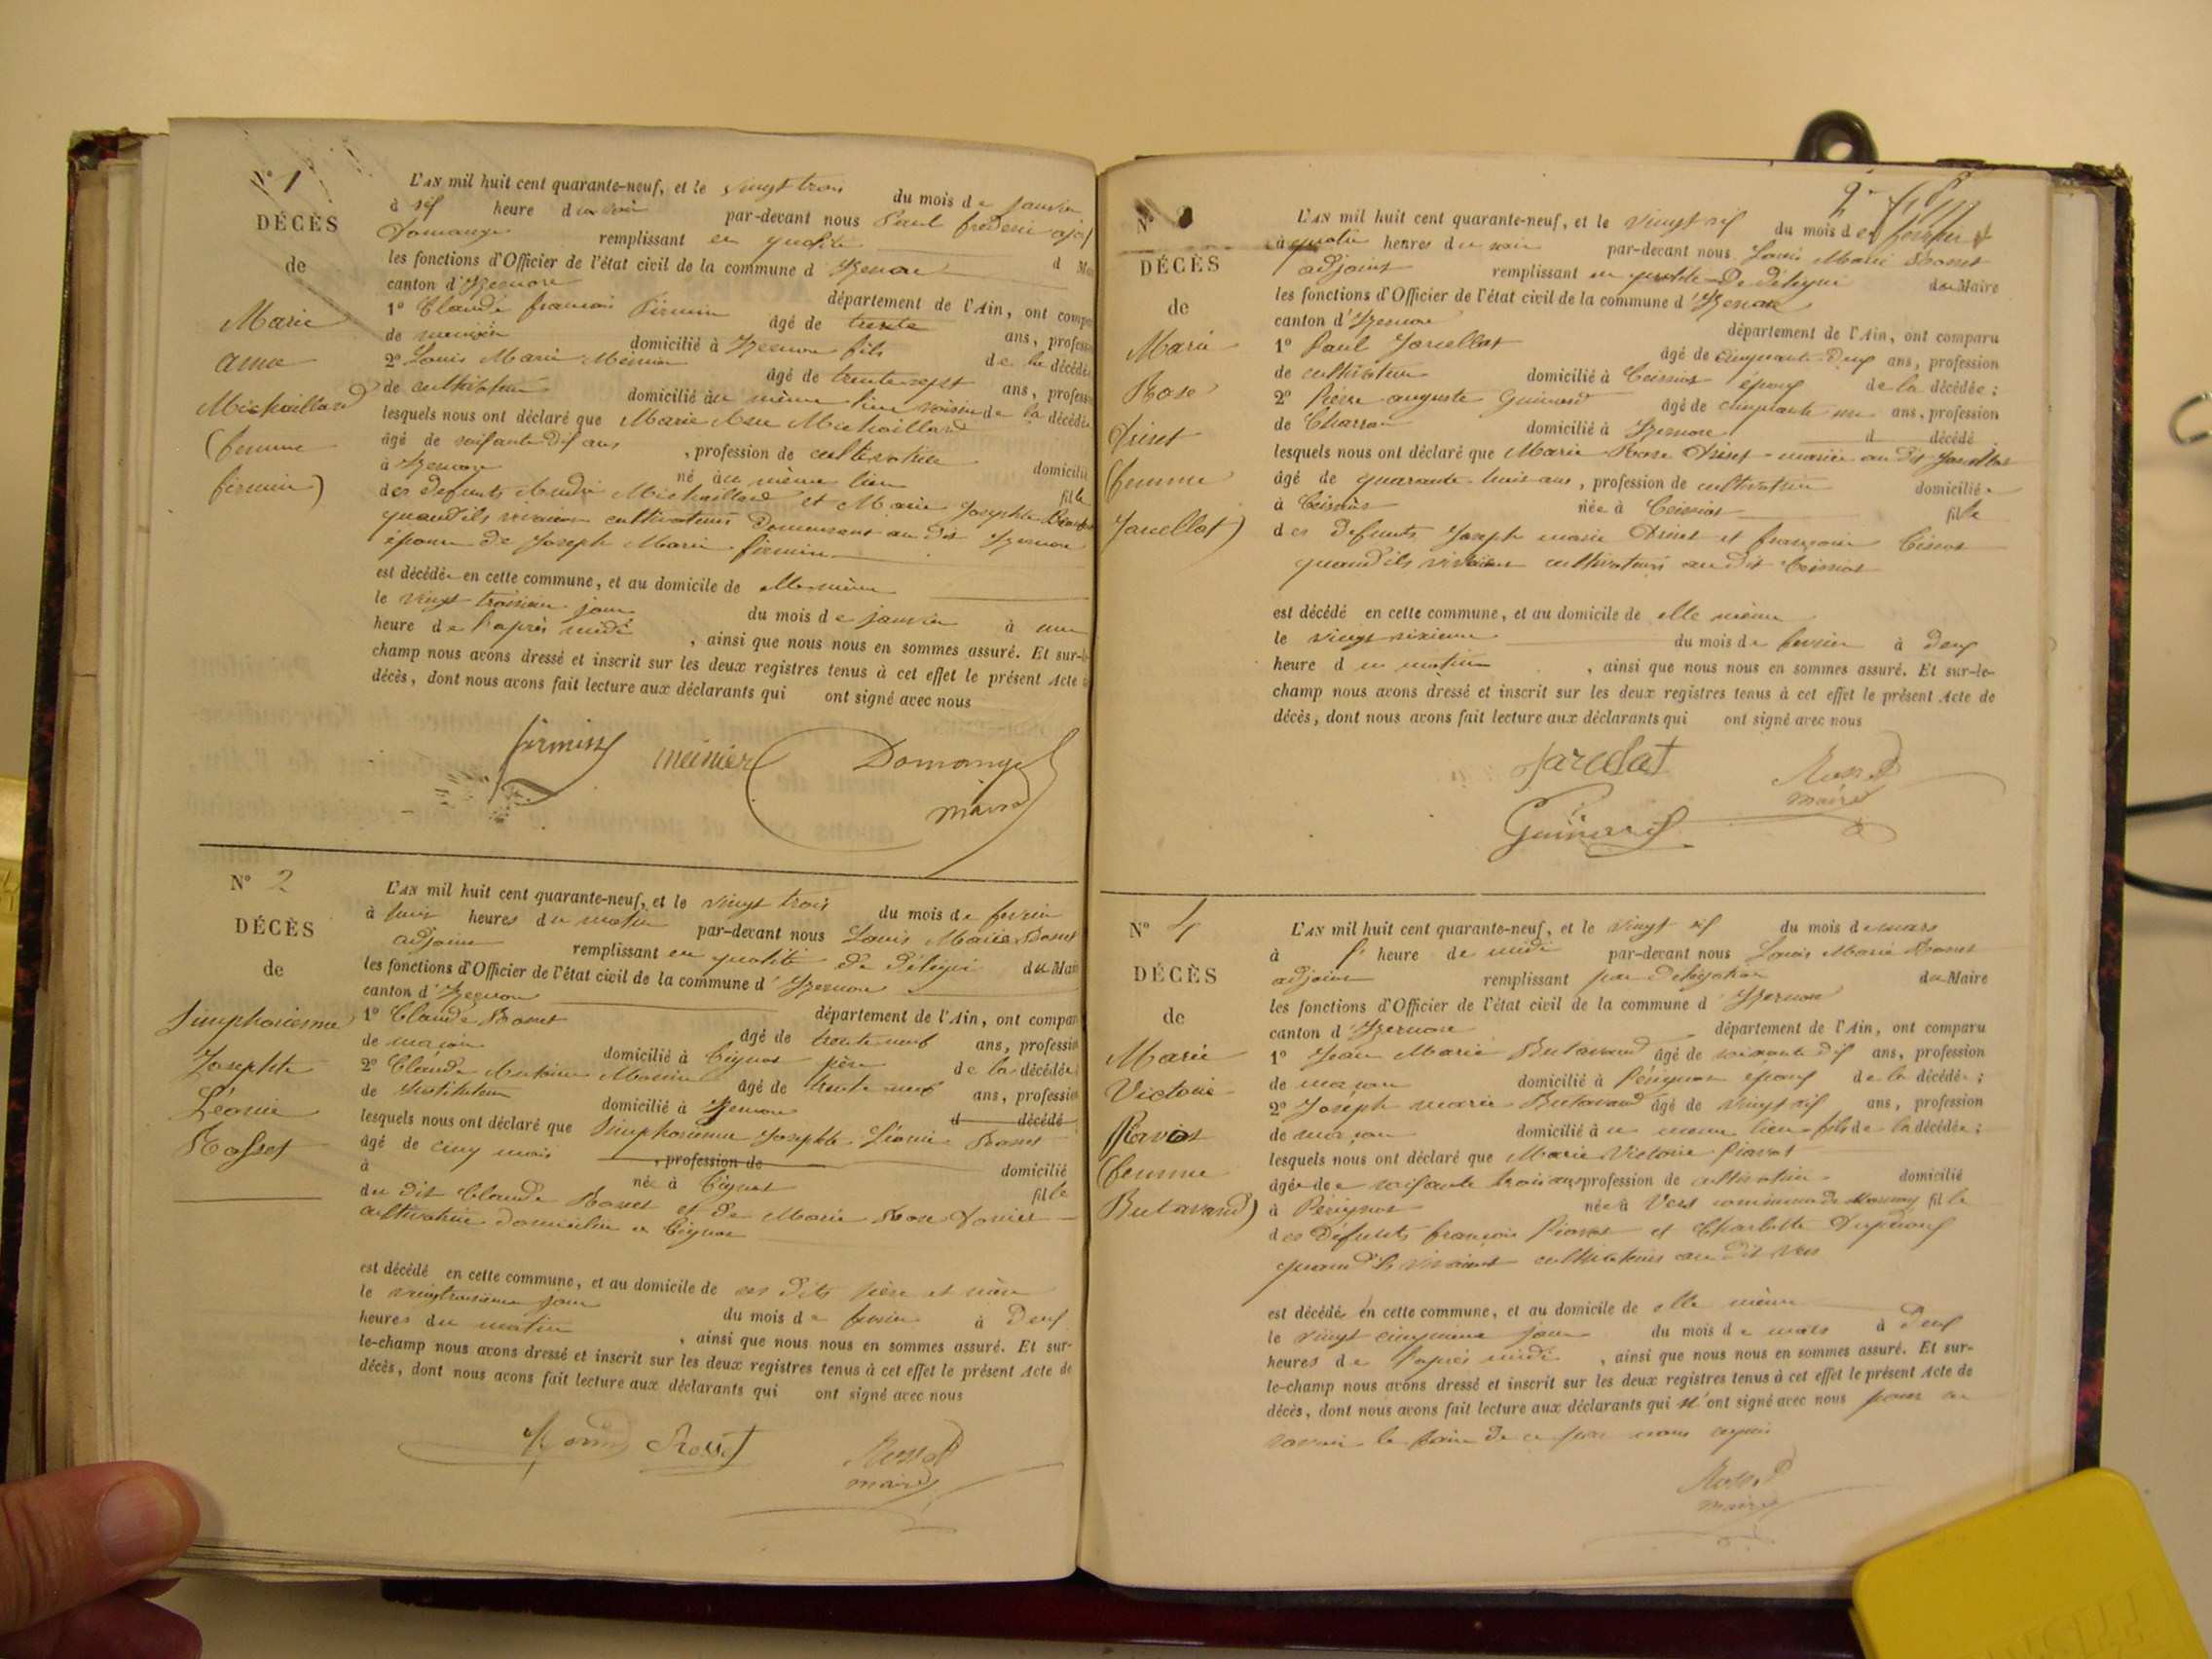 N° 1
DÉCÈS
de
Marie
anne
Michaillard
(femme
firmin)
L'AN mil huit cent quarante-neuf, et le vingt trois du mois de janvier
à six heure du soir par-devant nous Paul frederic
Domange remplissant en qualité
les fonctions d'Officier de l'état civil de la commune d'Izernore
canton d'Izernore département de l'Ain, ont compa
1° Claude francois Firmin âgé de trente ans, profess
de domicilié à Izernore fils de la décédée
2° Louis Marie Meinier âgé de trente sept ans, profess
de cultivateur domicilié au même lieu voisin de la décédée
lesquels nous ont déclaré que Marie Anne Michaillard
âgé de soixante dix ans, profession de cultivatrice domicilié
à Izernore né au même lieu fille
des défunts André Michaillard et Marie Josephte
quand ils vivaient cultivateurs demeurant au dit Izernore
épouse de Joseph Marie firmin
est décédée en cette commune, et au domicile de elle même
le vingt troisième jour du mois de janvier à une
heure de l'après midi, ainsi que nous nous en sommes assuré. Et sur-le-
champ nous avons dressé et inscrit sur les deux registres tenus à cet effet le présent Acte de
décès, dont nous avons fait lecture aux déclarants qui ont signé avec nous
firmin meinier Domange
maire
N° 2
DÉCÈS
de
Simphorienne
Josephte
Léonie
Rosset
L'AN mil huit cent quarante-neuf, et le vingt trois du mois de fevrier
à huit heures du matin par-devant nous Louis Marie Rosset
adjoint remplissant en qualité de délégué du Maire
les fonctions d'Officier de l'état civil de la commune d'Izernore
canton d'Izernore département de l'Ain, ont compar
1° Claude Rosset âgé de trente neuf ans, profession
de maçon domicilié à Ceignes père de la décédée
2° Claude Antoine âgé de trente neuf ans, profession
de Instituteur domicilié à Izernore d décédé
lesquels nous ont déclaré que Simphorienne Josephte Léonie Rosset
âgé de cinq mois, profession de domicilié
à née à fille
du dit Claude Rosset et de Marie Rose
cultivatrice domiciliée à
est décédé en cette commune, et au domicile de ses dits père et mère
le vingtroisieme jour du mois de fevrier à deux
heures du matin, ainsi que nous nous en sommes assuré. Et sur-
le-champ nous avons dressé et inscrit sur les deux registres tenus à cet effet le présent Acte de
décès, dont nous avons fait lecture aux déclarants qui ont signé avec nous
Rosset
maire
N° 3
DÉCÈS
de
Marie
Rose
(femme
L'AN mil huit cent quarante-neuf, et le vingt six du mois de fevrier
à quatre heures du soir par-devant nous Louis Marie Rosset
adjoint remplissant en qualité de délégué du Maire
les fonctions d'Officier de l'état civil de la commune d'Izernore
canton d'Izernore département de l'Ain, ont comparu
1° Paul âgé de cinquante deux ans, profession
de cultivateur domicilié à Ceissiat époux de la décédée;
2° Pierre auguste Guinard âgé de cinquante un ans, profession
de Charron domicilié à Izernore d décédé
lesquels nous ont déclaré que Marie Rose mariée au dit
âgé de quarante huit ans, profession de cultivatrice domiciliée
à Ceissiat née à Ceissiat fille
des défunts Joseph marie et françoise
quand ils vivaient cultivateurs au dit Ceissiat
est décédé en cette commune, et au domicile de elle même
le vingt sixieme du mois de fevrier à deux
heure du matin, ainsi que nous nous en sommes assuré. Et sur-le-
champ nous avons dressé et inscrit sur les deux registres tenus à cet effet le présent Acte de
décès, dont nous avons fait lecture aux déclarants qui ont signé avec nous
Rosset
maire
Guinard
N° 4
DÉCÈS
de
Marie
Victoire
Piavat
(femme
Butavand)
L'AN mil huit cent quarante-neuf, et le vingt six du mois de mars
à heure de midi par-devant nous Louis Marie Rosset
adjoint remplissant par délégation du Maire
les fonctions d'Officier de l'état civil de la commune d'Izernore
canton d'Izernore département de l'Ain, ont comparu
1° Jean Marie Butavand âgé de soixante dix ans, profession
de maçon domicilié à Pérignat époux de la décédée;
2° Joseph marie Butavand âgé de vingt six ans, profession
de maçon domicilié à u meme lieu fils de la décédée;
lesquels nous ont déclaré que Marie Victoire Piavat
âgée de soixante trois ans, profession de cultivatrice domicilié
à Pérignat née à Vers commune de Mornay fille
des défunts françois Piavat et Charlotte
quand ils vivaient cultivateurs au dit Vers
est décédée en cette commune, et au domicile de elle même
le vingt cinquieme jour du mois de mars à deux
heures de l'après midi, ainsi que nous nous en sommes assuré. Et sur-
le-champ nous avons dressé et inscrit sur les deux registres tenus à cet effet le présent Acte de
décès, dont nous avons fait lecture aux déclarants qui n'ont signé avec nous pour ne
savoir le faire de ce par nous requis
Rosset
maire